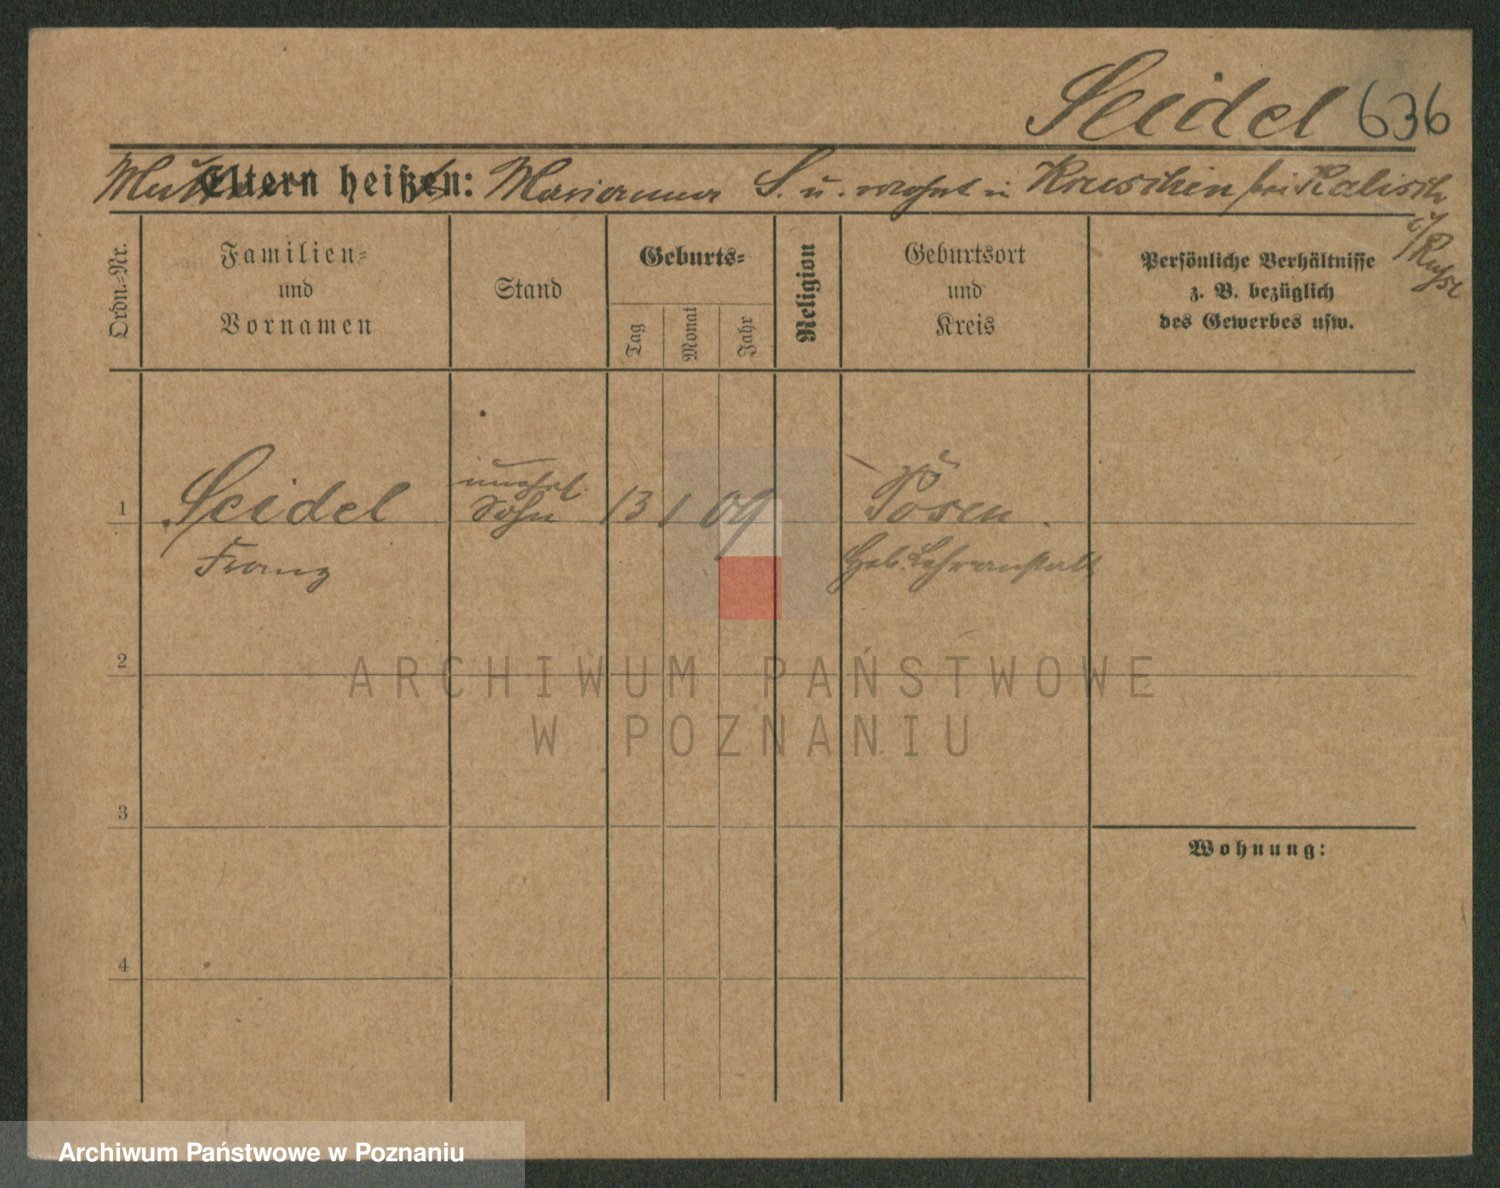 Seidel 636
Mutter Eltern heißen: Marianna S. u. wohnt in Kruschin bei Kalisch
i/Russl
Ordn.-Nr.
Familien-
und
Vornamen
Stand
Geburts-
Tag
Monat
Jahr
Religion
Geburtsort
und
Kreis
Persönliche Verhältnisse
z. B. bezüglich
des Gewerbes usw.
1
Seidel
Franz
unehel.
Sohn
13 1 09
Posen
Heb. Lehranstalt
2
3
4
Wohnung:
ARCHIWUM PAŃSTWOWE
W POZNANIU
Archiwum Państwowe w Poznaniu